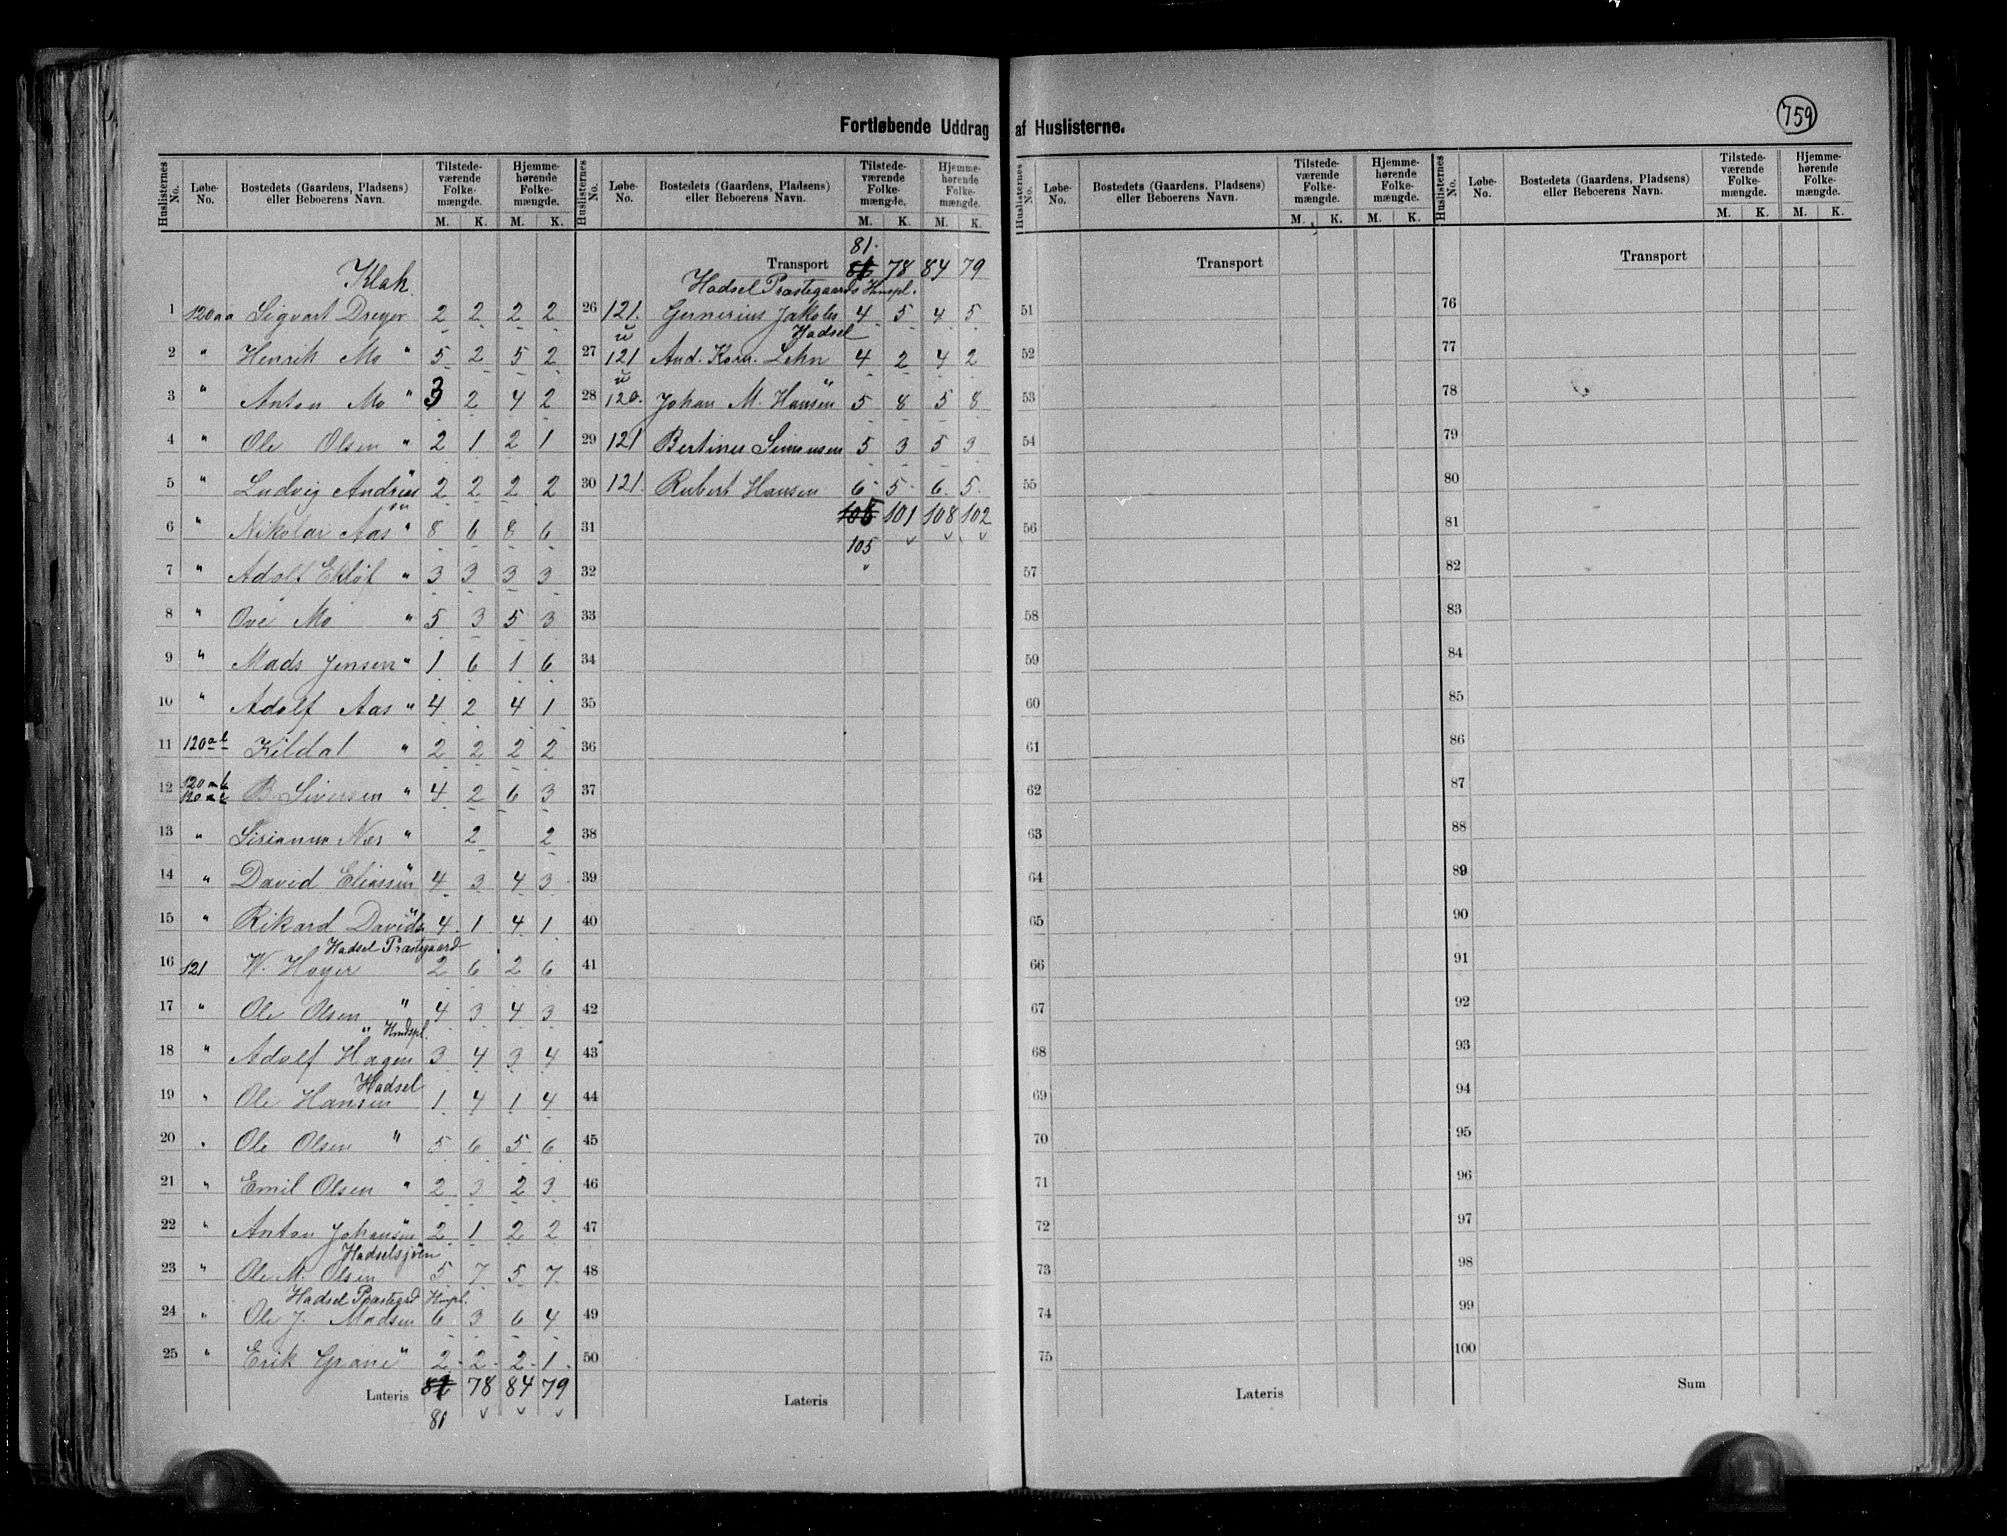 759
Fortløbende Uddrag af Huslisterne.
Huslisternes No. Løbe-No. Bostedets (Gaardens, Pladsens) eller Beboerens Navn. Tilstedeværende Folkemængde. M. K. Hjemmehørende Folkemængde. M. K.
Klak
1 120aa Sigvart Dreyer 2 2 2 2
2 " Henrik Mo " 5 2 5 2
3 " Anton Mo " 3 2 4 2
4 " Ole Olsen " 2 1 2 1
5 " Ludvig Andrias 2 2 2 2
6 " Nikolai Aas " 8 6 8 6
7 " Adolf Ekløf " 3 3 3 3
8 " Ove Mo " 5 3 5 3
9 " Mads Jensen " 1 6 1 6
10 " Adolf Aas " 4 2 4 1
11 120 Kildal " 2 2 2 2
12 120 B. Siversen " 4 2 6 3
13 " Nes " 2 2
14 " David Eliassen 4 3 4 3
15 " Rikard Davids 4 1 4 1
Hadsel Præstegaard
16 121 W. Høyer 2 6 2 6
17 " Ole Olsen " 4 3 4 3
" Husspl.
18 " Adolf Hagen 3 4 3 4
Hadsel
19 " Ole Hansen 1 4 1 4
20 " Ole Olsen " 5 6 5 6
21 " Emil Olsen " 2 3 2 3
22 " Anton Johansen 2 1 2 2
Hadselsjøen
23 " Ole M. Olsen 5 7 5 7
Hadsel Præstegrd Huspl.
24 " Ole J. Madsen 6 3 6 4
25 " Erik Grane " 2 2 2 1
Lateris 78 84 79
81
Huslisternes No. Løbe-No. Bostedets (Gaardens, Pladsens) eller Beboerens Navn. Tilstedeværende Folkemængde. M. K. Hjemmehørende Folkemængde. M. K.
81
Transport 78 84 79
Hadsel Præstegaards Huspl.
26 121 Gernerius Jakobs 4 5 4 5
Hadsel
27 121 And. Korn. Lehn 4 2 4 2
28 120 Johan M. Hansen 5 8 5 8
29 121 Bertines Simonsen 5 3 5 3
30 121 Robert Hansen 6 5 6 5
31 101 108 102
105
32
33
34
35
36
37
38
39
40
41
42
43
44
45
46
47
48
49
50
Lateris
Huslisternes No. Løbe-No. Bostedets (Gaardens, Pladsens) eller Beboerens Navn. Tilstedeværende Folkemængde. M. K. Hjemmehørende Folkemængde. M. K.
Transport
51
52
53
54
55
56
57
58
59
60
61
62
63
64
65
66
67
68
69
70
71
72
73
74
75
Lateris
Huslisternes No. Løbe-No. Bostedets (Gaardens, Pladsens) eller Beboerens Navn. Tilstedeværende Folkemængde. M. K. Hjemmehørende Folkemængde. M. K.
Transport
76
77
78
79
80
81
82
83
84
85
86
87
88
89
90
91
92
93
94
95
96
97
98
99
100
Sum